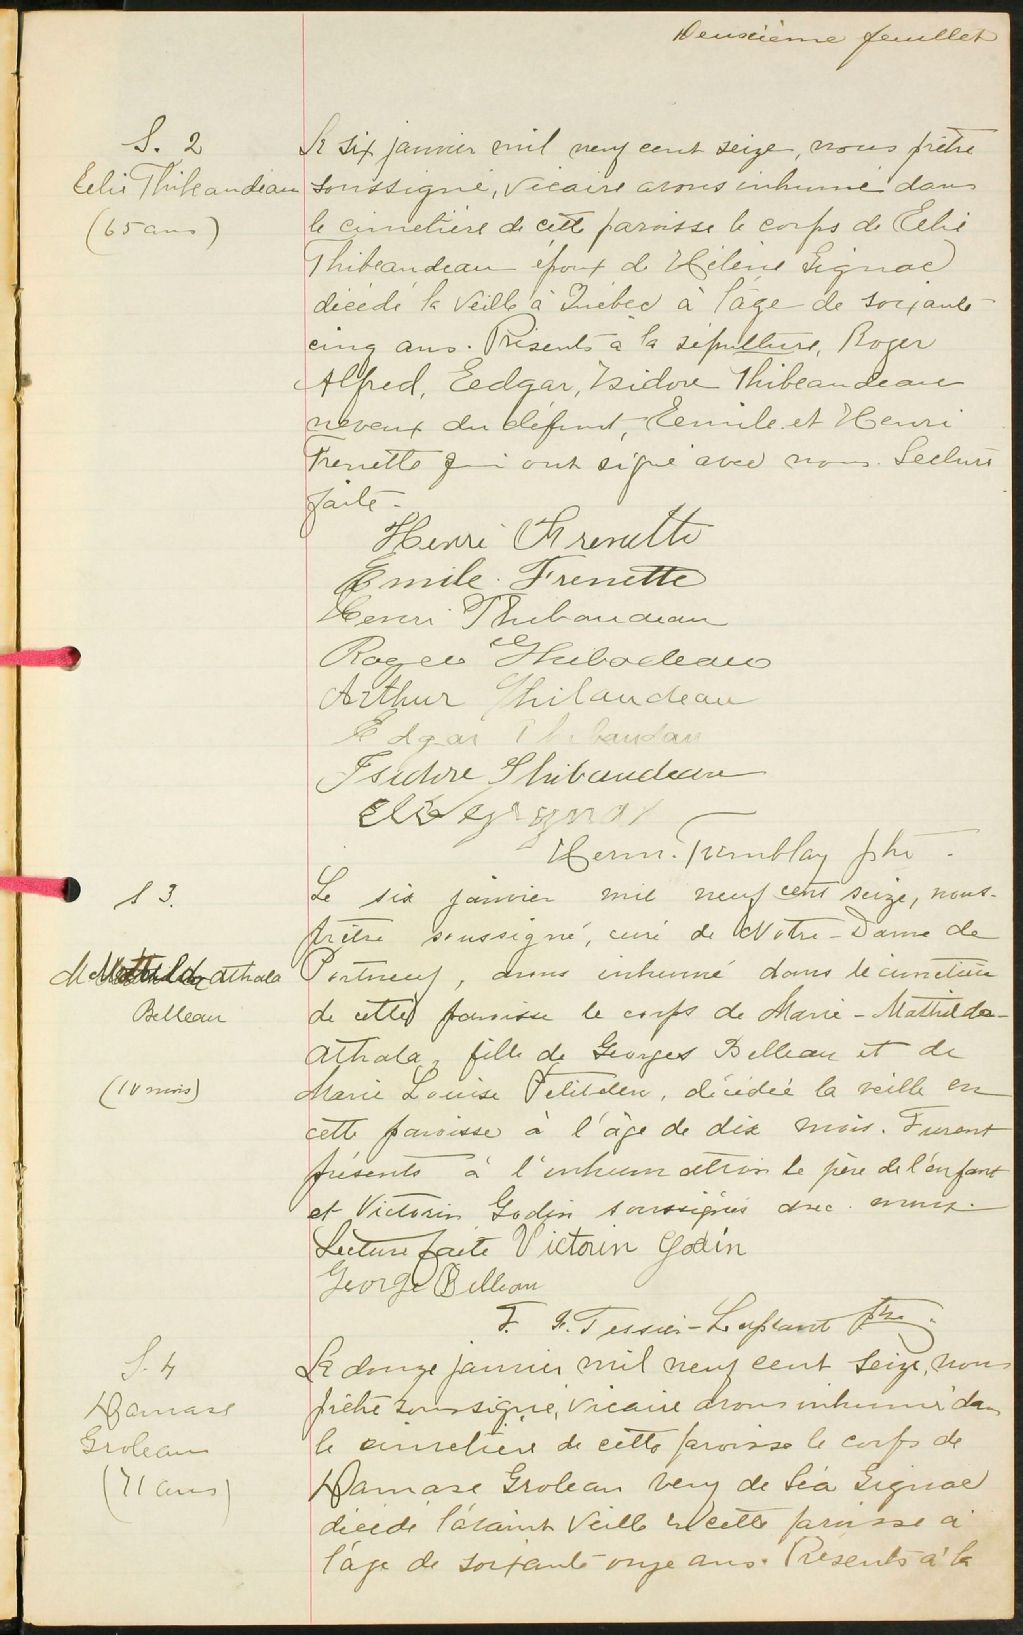 Deuxième feuillet
S. 2
Eelie Thibeaudeau
(65 ans)
Le six janvier mil neuf cent seize, nous prêtre
soussigné, vicaire avons inhumé dans
le cimetière de cette paroisse le corps de Eelie
Thibeaudeau époux de Hélène Gignac
décédé la veille à Québec à l'âge de soixante
cinq ans. Présents à la sépulture, Roger
Alfred, Eedgar, Isidore Thibeaudeau
neveux du défunt, Eemile et Henri
Frenette qui ont signé avec nous. Lecture
faite.
Henri Frenette
Emile. Frenette
Henri Thibaudeau
Roger Thibodeau
Arthur Thibaudeau
Edgar Thibaudau
Isidore Thibaudeau
Herm. Tremblay ptre.
S 3.
M Mathilda Athala
Belleau
(10 mois)
Le six janvier mil neuf cent seize, nous-
prêtre soussigné, curé de Notre-Dame de
Portneuf, avons inhumé dans le cimetière
de cette paroisse le corps de Marie-Mathilda-
Athala, fille de Georges Belleau et de
Marie Louise Petitclerc, décédée la veille en
cette paroisse à l'âge de dix mois. Furent
présents à l'inhumation le père de l'enfant
et Victorin Godin soussignés avec nous.
Lecture faite Victorin Godin
George Belleau
F. X. Tessier-Laplante ptre.
S. 4
Damase
Groleau
(71 ans)
Le douze janvier mil neuf cent seize, nous
prêtre soussigné, vicaire avons inhumé dans
le cimetière de cette paroisse le corps de
Damase Groleau veuf de Léa Gignac
décédé l'avant veille en cette paroisse à
l'âge de soixante onze ans. Présents à la